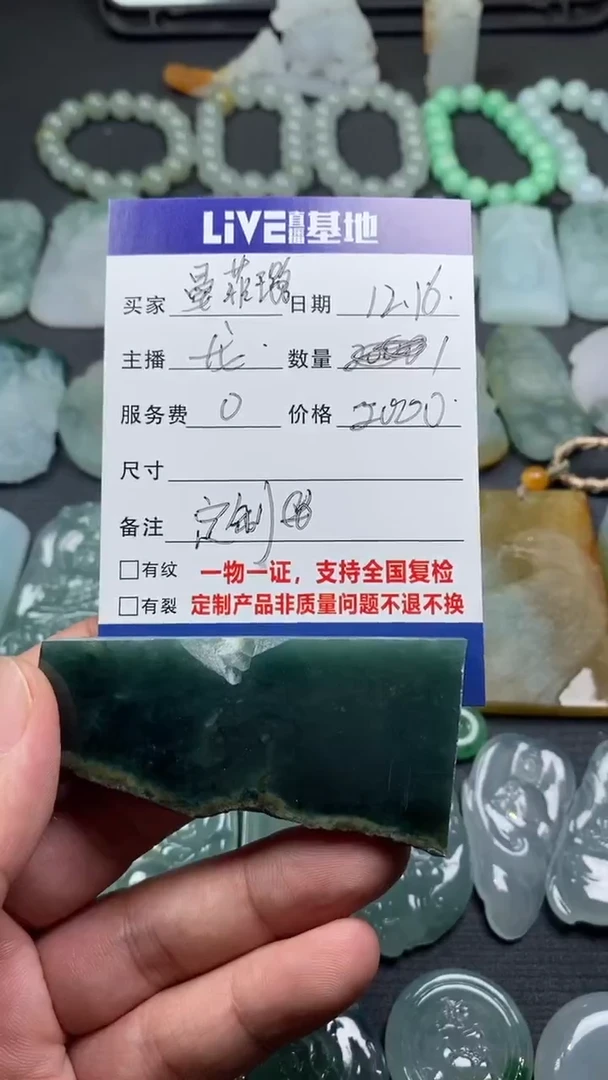 LIVE直播基地
买家 曼菲璐 日期 12.16.
主播 龙. 数量 1
服务费 0 价格 2000.
尺寸
备注 定制
□有纹 一物一证，支持全国复检
□有裂 定制产品非质量问题不退不换